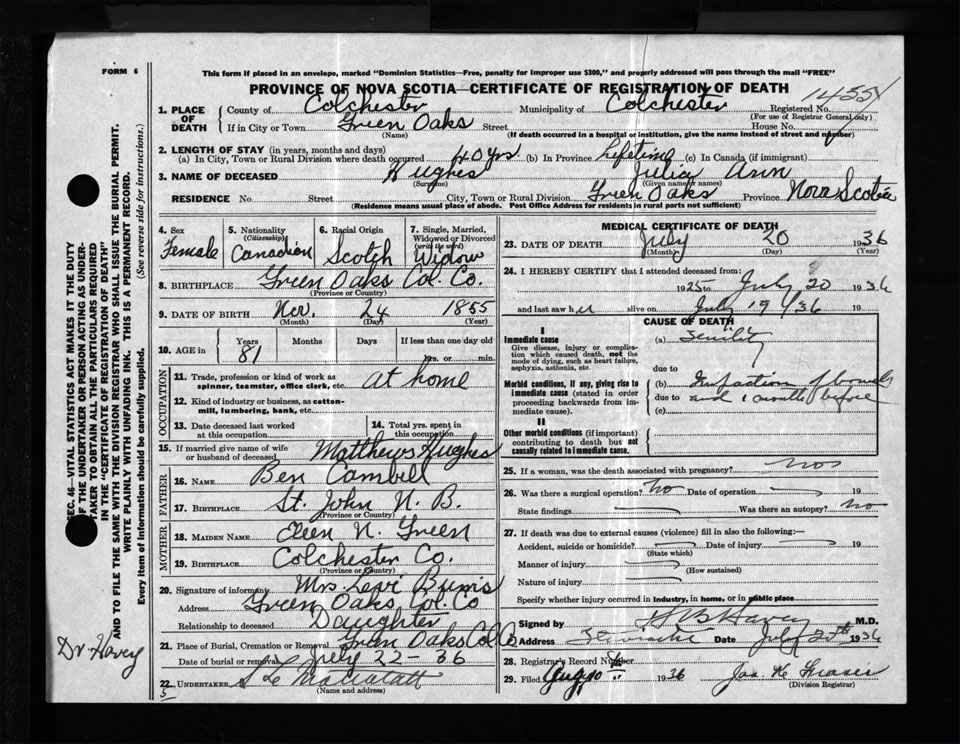 FORM 6
This form if placed in an envelope, marked "Dominion Statistics—Free, penalty for improper use $300," and properly addressed will pass through the mail "FREE"
PROVINCE OF NOVA SCOTIA—CERTIFICATE OF REGISTRATION OF DEATH
1. PLACE OF DEATH
County of Colchester Municipality of Colchester Registered No.
(For use of Registrar General only)
If in City or Town Green Oaks Street House No.
(Name) (If death occurred in a hospital or institution, give the name instead of street and number)
2. LENGTH OF STAY (in years, months and days)
(a) In City, Town or Rural Division where death occurred 40 yrs (b) In Province Lifetime (c) In Canada (if immigrant)
3. NAME OF DECEASED Hughes Julia Ann
(Surname) (Given name or names)
RESIDENCE No. Street City, Town or Rural Division Green Oaks Province Nova Scotia
(Residence means usual place of abode. Post Office Address for residents in rural parts not sufficient)
4. Sex Female
5. Nationality (Citizenship) Canadian
6. Racial Origin Scotch
7. Single, Married, Widowed or Divorced (write the word) Widow
8. BIRTHPLACE Green Oaks Col. Co.
(Province or Country)
9. DATE OF BIRTH 24 1855
(Month) (Day) (Year)
10. AGE in Years 81 Months Days If less than one day old
hrs. or min.
OCCUPATION
11. Trade, profession or kind of work as spinner, teamster, office clerk, etc. at home
12. Kind of industry or business, as cotton-mill, lumbering, bank, etc.
13. Date deceased last worked at this occupation
14. Total yrs. spent in this occupation
15. If married give name of wife or husband of deceased Matthews Hughes
FATHER
16. NAME Ben Cambell
17. BIRTHPLACE St. John N. B.
(Province or Country)
MOTHER
18. MAIDEN NAME Eleen N. Green
19. BIRTHPLACE Colchester Co.
(Province or Country)
20. Signature of informant Mrs. Levi Burris
Address Green Oaks Col. Co
Relationship to deceased Daughter
21. Place of Burial, Cremation or Removal Green Oaks Col. Co
Date of burial or removal July 22-36
22. UNDERTAKER
(Name and address)
5
MEDICAL CERTIFICATE OF DEATH
23. DATE OF DEATH July 20 1936
(Month) (Day) (Year)
24. I HEREBY CERTIFY that I attended deceased from:
1925 to July 20 1936
and last saw her alive on July 19/36 19
CAUSE OF DEATH
I
Immediate cause
Give disease, injury or complication which caused death, not the mode of dying, such as heart failure, asphyxia, asthenia, etc.
(a) Senility
due to
Morbid conditions, if any, giving rise to immediate cause (stated in order proceeding backwards from immediate cause).
(b) of bowels
due to before
(c)
II
Other morbid conditions (if important) contributing to death but not causally related to immediate cause.
25. If a woman, was the death associated with pregnancy? no
26. Was there a surgical operation? No Date of operation 19
State findings Was there an autopsy? no
27. If death was due to external causes (violence) fill in also the following:—
Accident, suicide or homicide? Date of injury 19
(State which)
Manner of injury
(How sustained)
Nature of injury
Specify whether injury occurred in industry, in home, or in public place
Signed by M.D.
Address Date July 1936
28. Registrar's Record Number
29. Filed 1936 Jas. K. Fraser
(Division Registrar)
SEC. 46—VITAL STATISTICS ACT MAKES IT THE DUTY
OF THE UNDERTAKER OR PERSON ACTING AS UNDER-
TAKER TO OBTAIN ALL THE PARTICULARS REQUIRED
IN THE "CERTIFICATE OF REGISTRATION OF DEATH"
AND TO FILE THE SAME WITH THE DIVISION REGISTRAR WHO SHALL ISSUE THE BURIAL PERMIT.
WRITE PLAINLY WITH UNFADING INK. THIS IS A PERMANENT RECORD.
Every item of Information should be carefully supplied. (See reverse side for instructions.)
Dr. Havey